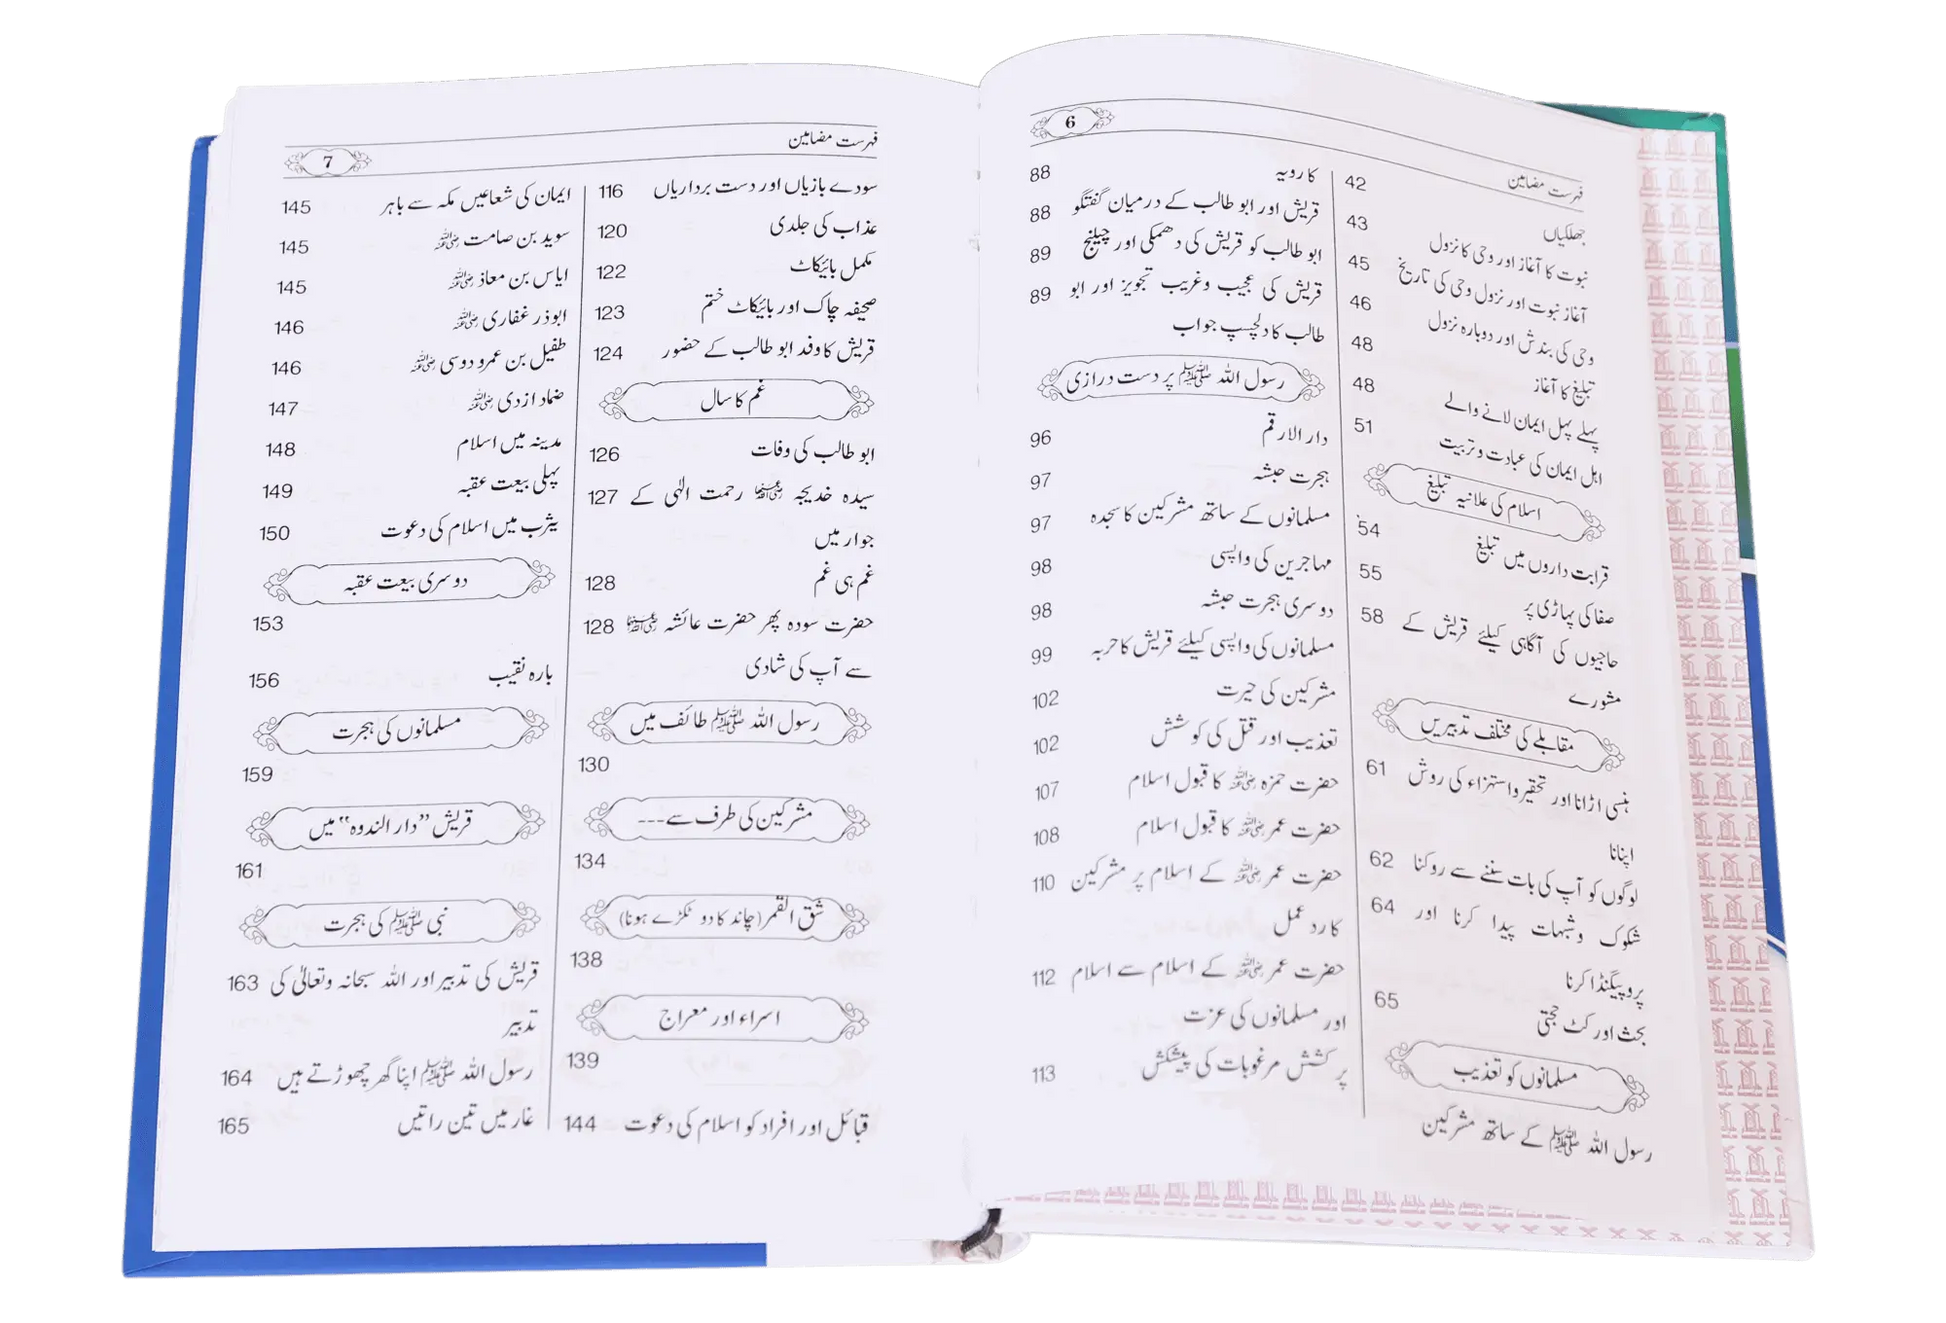 6
فہرست مضامین
جھلکیاں 42
نبوت کا آغاز اور وحی کا نزول 43
آغاز نبوت اور نزول وحی کی تاریخ 45
وحی کی بندش اور دوبارہ نزول 46
تبلیغ کا آغاز 48
پہلے پہل ایمان لانے والے 48
اہل ایمان کی عبادت و تربیت 51
اسلام کی علانیہ تبلیغ
قرابت داروں میں تبلیغ 54
صفا کی پہاڑی پر 55
حاجیوں کی آگاہی کیلئے قریش کے 58
مشورے
مقابلے کی مختلف تدبیریں
ہنسی اڑانا اور تحقیر و استہزاء کی روش 61
اپنانا
لوگوں کو آپ کی بات سننے سے روکنا 62
شکوک وشبہات پیدا کرنا اور 64
پروپیگنڈا کرنا
بحث اور کٹ حجتی 65
مسلمانوں کو تعذیب
رسول اللہ ﷺ کے ساتھ مشرکین
کا رویہ 88
قریش اور ابو طالب کے درمیان گفتگو 88
ابو طالب کو قریش کی دھمکی اور چیلنج 89
قریش کی عجیب وغریب تجویز اور ابو 89
طالب کا دلچسپ جواب
رسول اللہ ﷺ پر دست درازی
دار الارقم 96
ہجرت حبشہ 97
مسلمانوں کے ساتھ مشرکین کا سجدہ 97
مہاجرین کی واپسی 98
دوسری ہجرت حبشہ 98
مسلمانوں کی واپسی کیلئے قریش کا حربہ 99
مشرکین کی حیرت 102
تعذیب اور قتل کی کوشش 102
حضرت حمزہ رضی اللہ عنہ کا قبول اسلام 107
حضرت عمر رضی اللہ عنہ کا قبول اسلام 108
حضرت عمر رضی اللہ عنہ کے اسلام پر مشرکین 110
کا رد عمل
حضرت عمر رضی اللہ عنہ کے اسلام سے اسلام 112
اور مسلمانوں کی عزت
پر کشش مرغوبات کی پیشکش 113
فہرست مضامین
7
سودے بازیاں اور دست برداریاں 116
عذاب کی جلدی 120
مکمل بائیکاٹ 122
صحیفہ چاک اور بائیکاٹ ختم 123
قریش کا وفد ابو طالب کے حضور 124
غم کا سال
ابو طالب کی وفات 126
سیدہ خدیجہ رضی اللہ عنہا رحمت الٰہی کے 127
جوار میں
غم ہی غم 128
حضرت سودہ پھر حضرت عائشہ رضی اللہ عنہما 128
سے آپ کی شادی
رسول اللہ ﷺ طائف میں
130
مشرکین کی طرف سے---
134
شق القمر (چاند کا دو ٹکڑے ہونا)
138
اسراء اور معراج
139
قبائل اور افراد کو اسلام کی دعوت 144
ایمان کی شعاعیں مکہ سے باہر 145
سوید بن صامت رضی اللہ عنہ 145
ایاس بن معاذ رضی اللہ عنہ 145
ابوذر غفاری رضی اللہ عنہ 146
طفیل بن عمرو دوسی رضی اللہ عنہ 146
ضماد ازدی رضی اللہ عنہ 147
مدینہ میں اسلام 148
پہلی بیعت عقبہ 149
یثرب میں اسلام کی دعوت 150
دوسری بیعت عقبہ
153
بارہ نقیب 156
مسلمانوں کی ہجرت
159
قریش "دار الندوہ" میں
161
نبی ﷺ کی ہجرت
قریش کی تدبیر اور اللہ سبحانہ وتعالیٰ کی 163
تدبیر
رسول اللہ ﷺ اپنا گھر چھوڑتے ہیں 164
غار میں تین راتیں 165